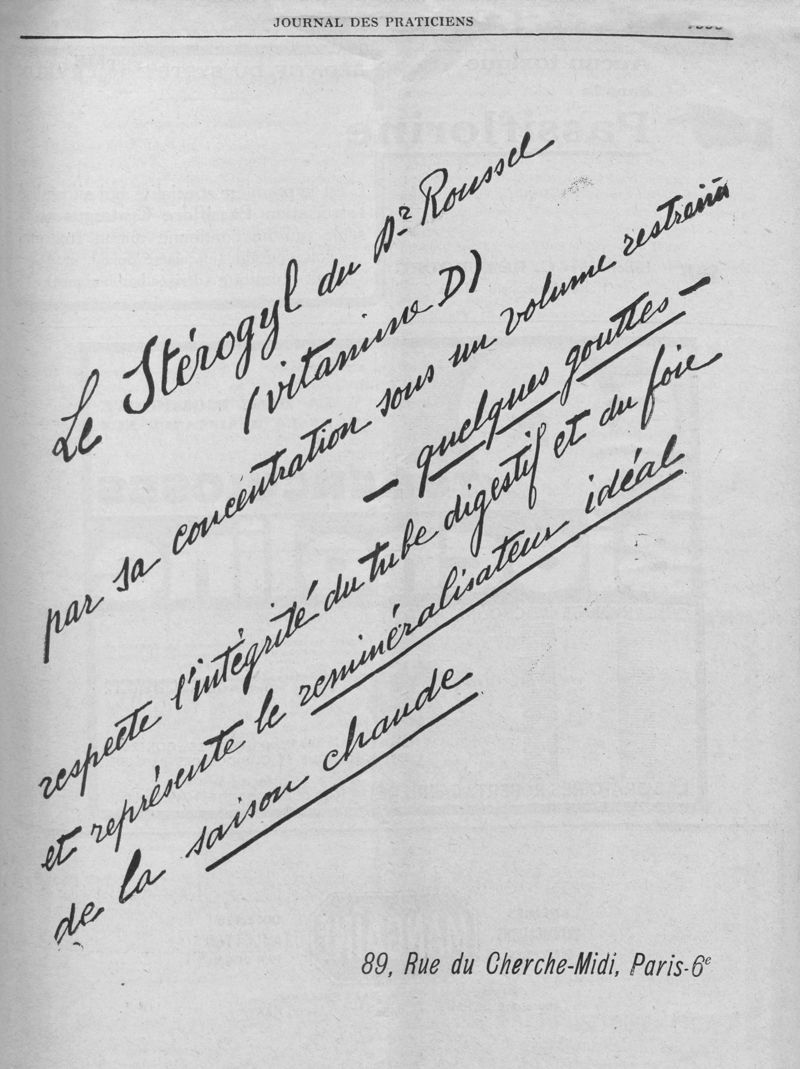 JOURNAL DES PRATICIENS
Le Stérogyl du Dr Roussel
(vitamine D)
par sa concentration sous un volume restreint
— quelques gouttes —
respecte l'intégrité du tube digestif et du foie
et représente le reminéralisateur idéal
de la saison chaude
89, Rue du Cherche-Midi, Paris-6e